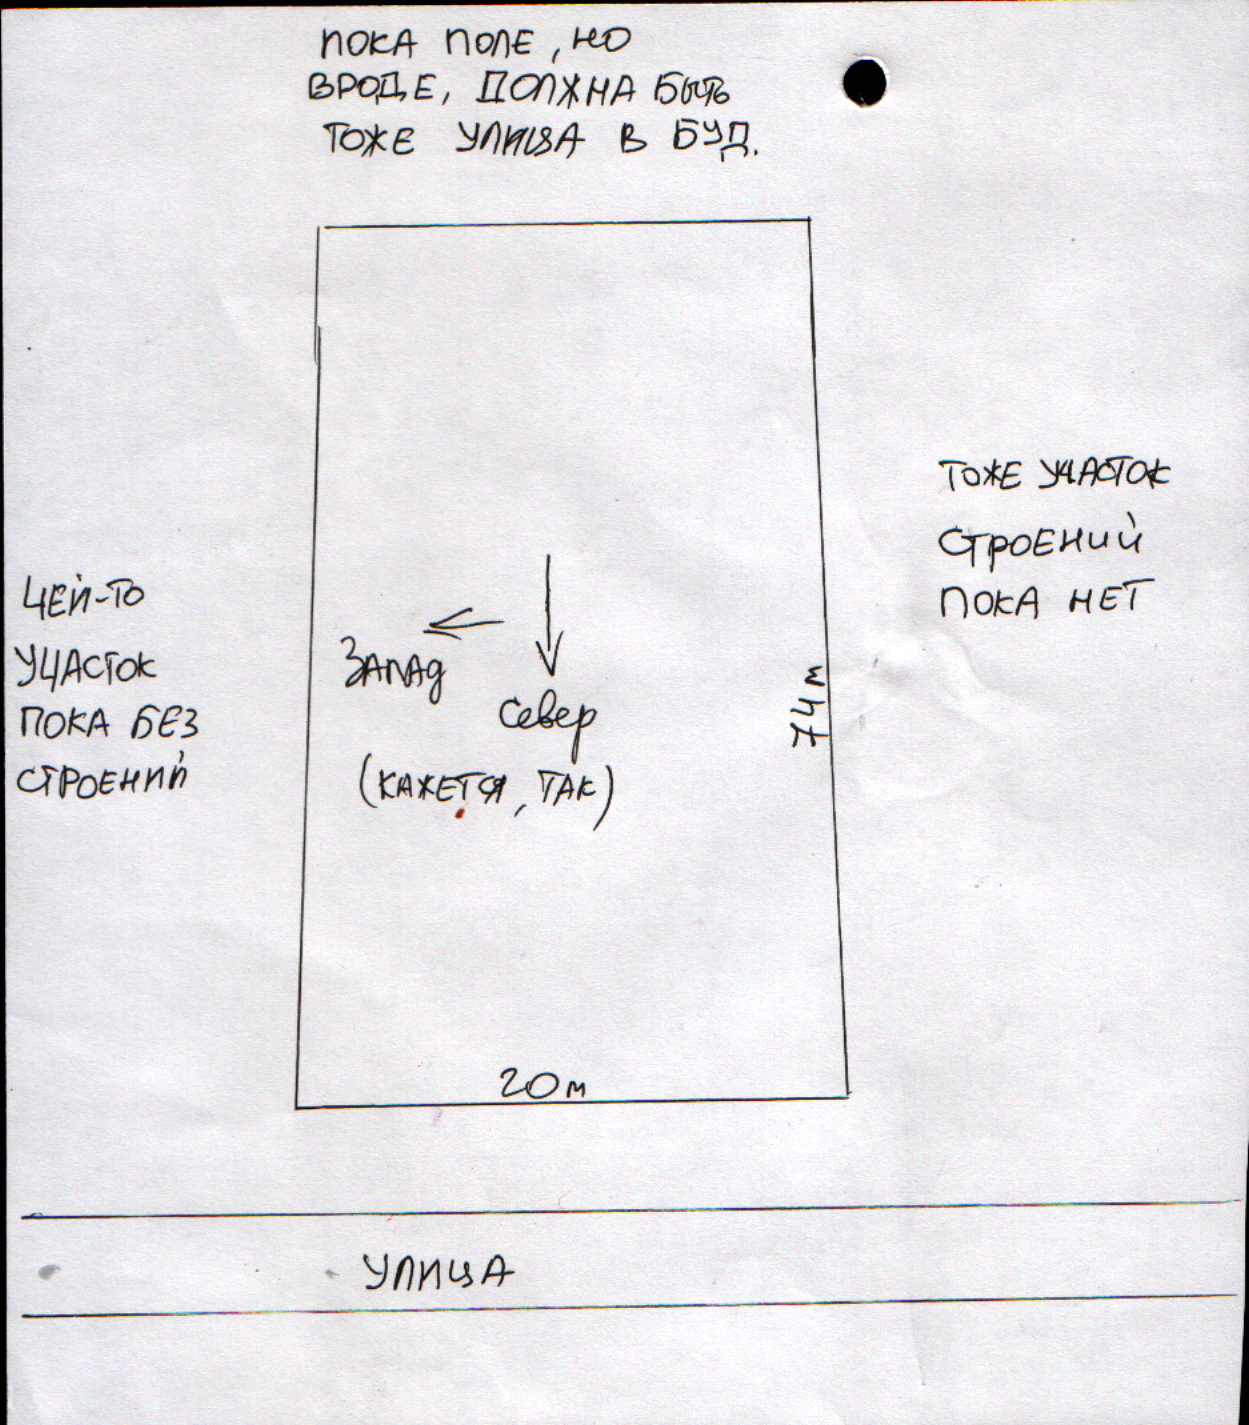 ПОКА ПОЛЕ, НО
ВРОДЕ, ДОЛЖНА БЫТЬ
ТОЖЕ УЛИЦА В БУД.
ТОЖЕ УЧАСТОК
СТРОЕНИЙ
ПОКА НЕТ
ЧЕЙ-ТО
УЧАСТОК
ПОКА БЕЗ
СТРОЕНИЙ
ЗАПАД
СЕВЕР
(КАЖЕТСЯ, ТАК)
74 м
20 м
УЛИЦА